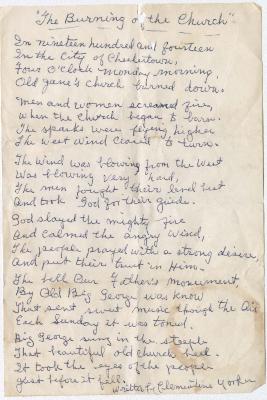 "The Burning of the Church"
In nineteen hundred and fourteen
In the City of Chestertown,
Four O'Clock Monday morning,
Old Jane's Church burned down.
Men and women screamed fire,
When the Church began to burn.
The sparks were flying higher
The west wind to turn.
The Wind was blowing from the West
Was blowing very hard,
The men fought their level best
And took God for their guide.
God stayed the mighty fire
And calmed the angry Wind,
The people prayed with a strong desire,
And put their trust in Him.
The bell Our Father's monument,
By Old Big George was know
That sent sweet music through the Air
Each Sunday it was toned.
Big George sung in the steeple
That beautiful old church bell.
It took the eyes of the people
Just before it fell.
Written by Clementine Yorker